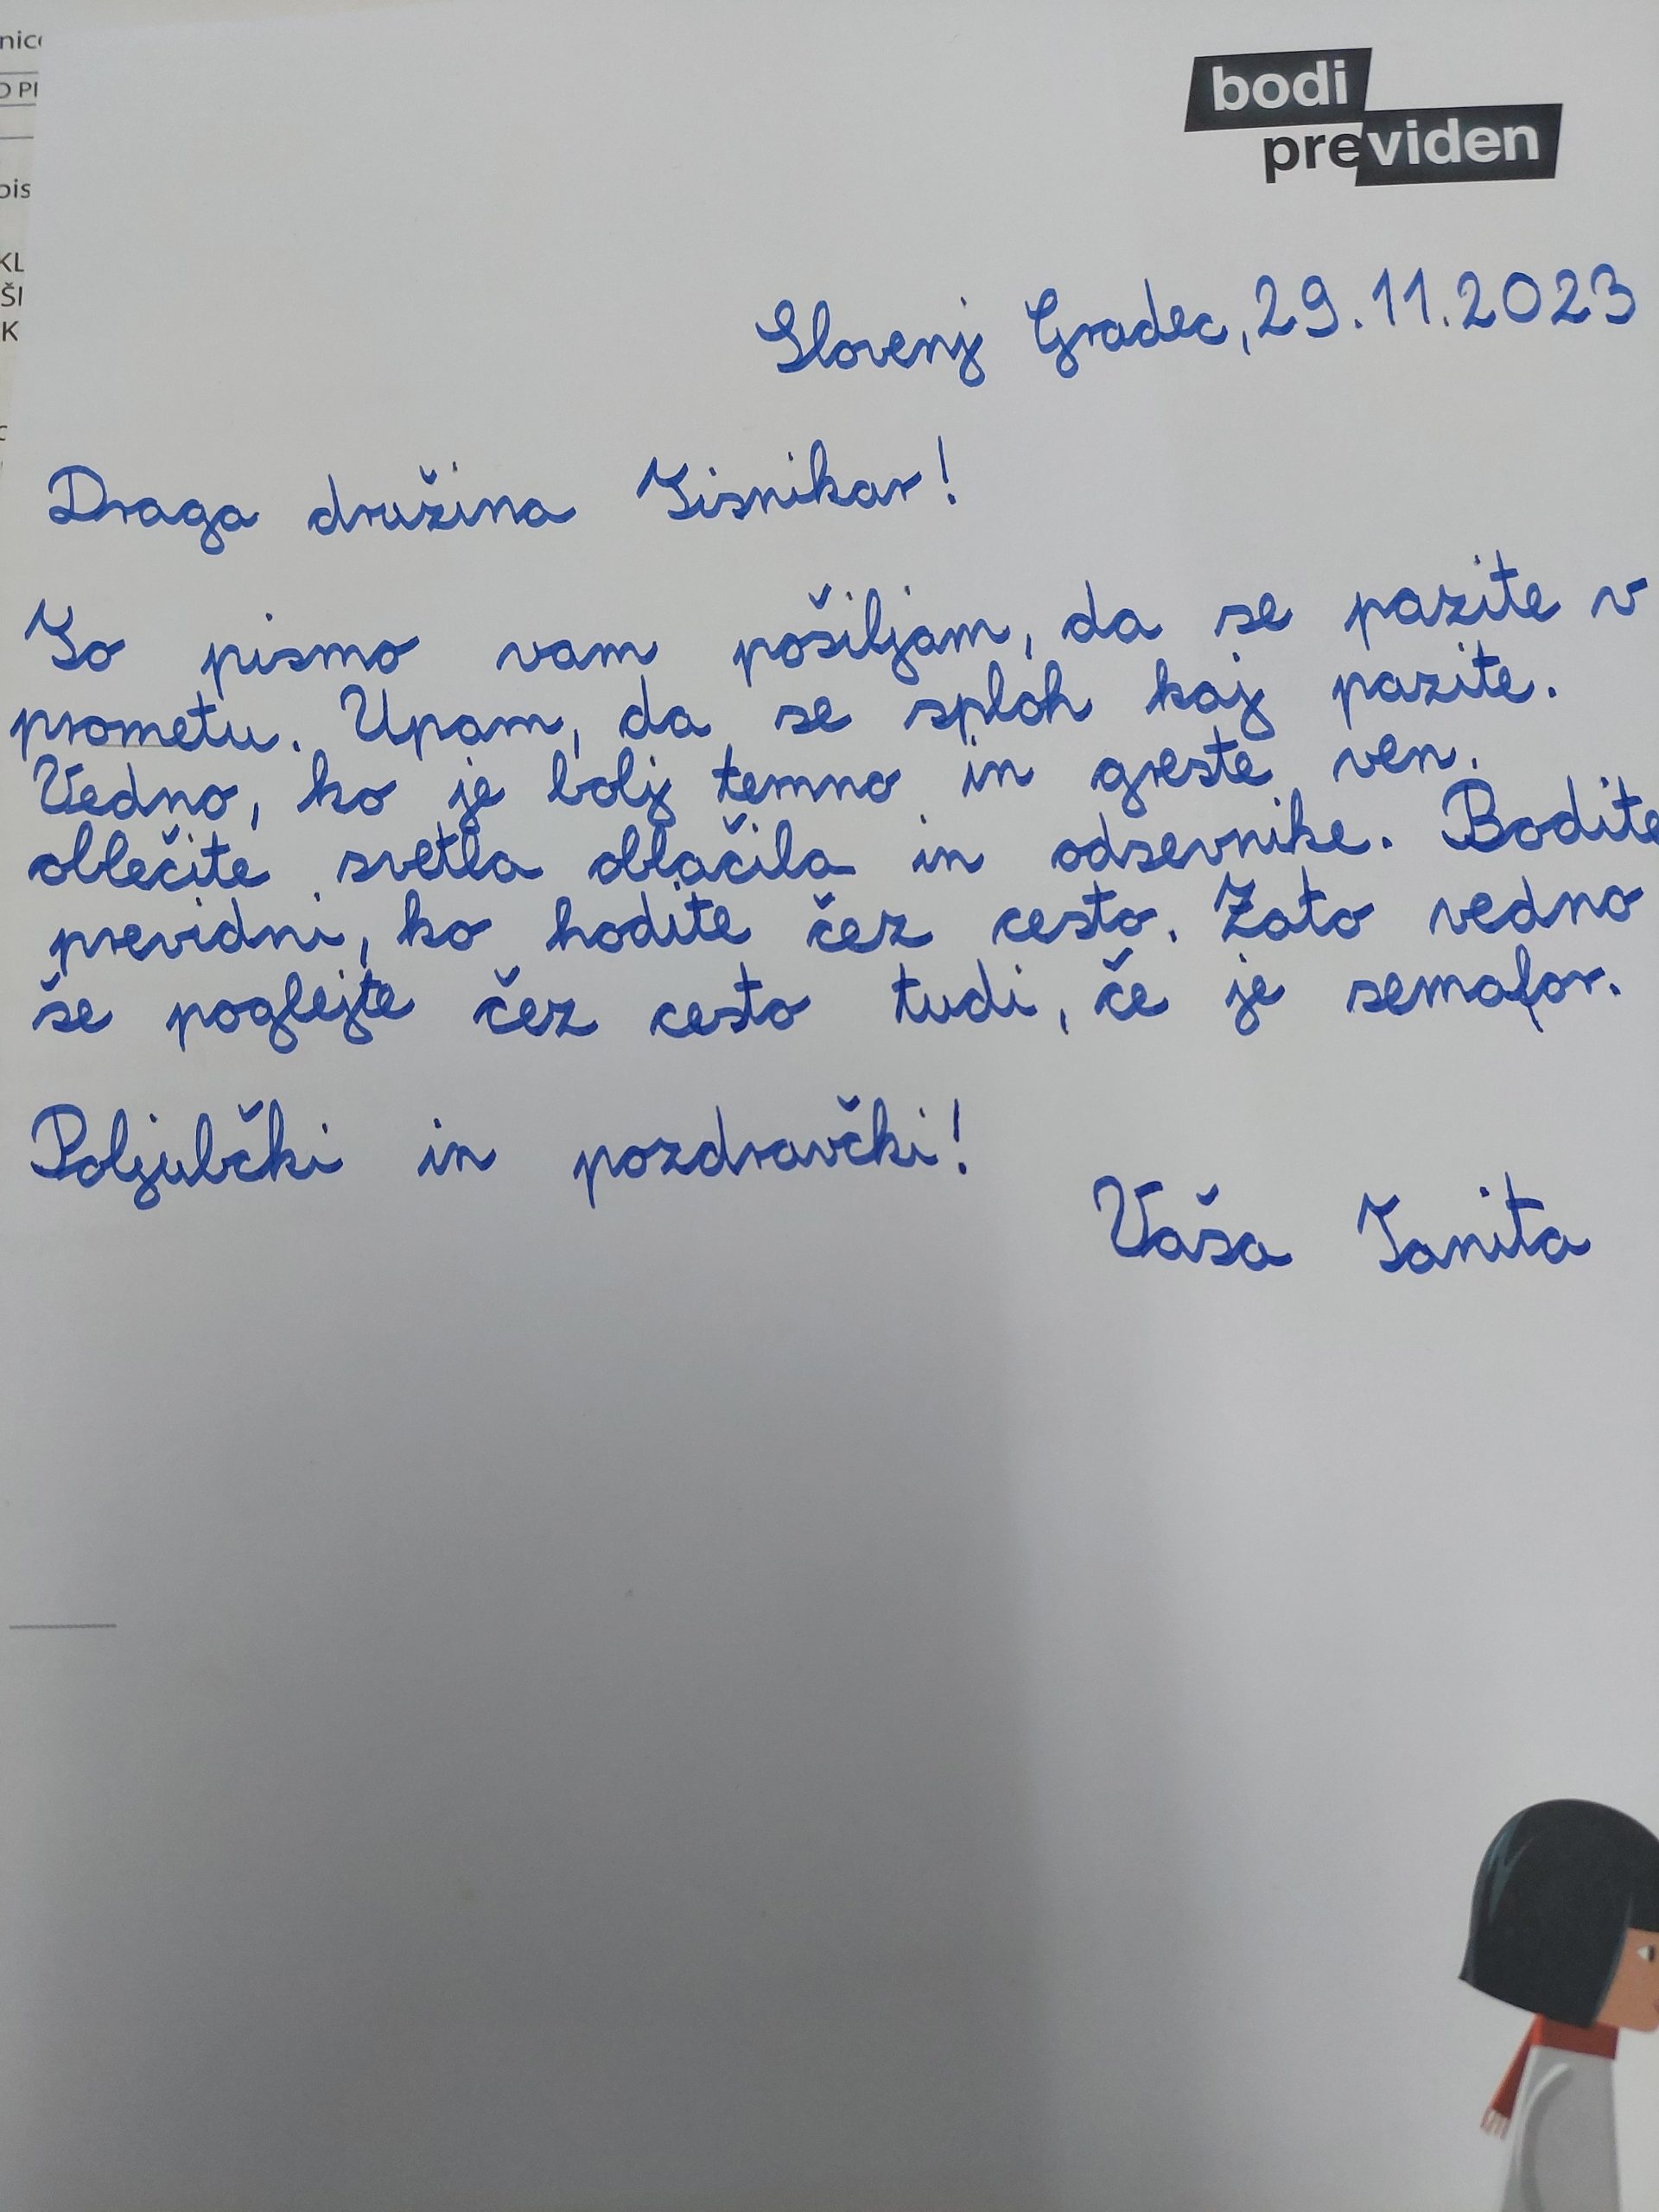 nic
O PI
pis
KL
ŠI
K
bodi
previden
Slovenj Gradec, 29.11.2023
Draga družina Tisnikar!
To pismo vam pošiljam, da se pazite v
prometu. Upam, da se sploh kaj pazite.
Vedno, ko je bolj temno in greste ven.
oblečite svetla oblačila in odsevnike. Bodite
previdni, ko hodite čez cesto. Zato vedno
še poglejte čez cesto tudi, če je semafor.
Poljubčki in pozdravčki!
Vaša Tanita